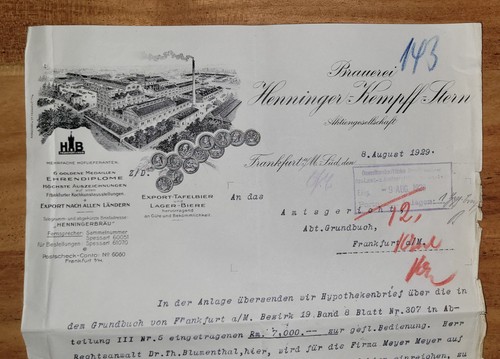 143
Brauerei
Henninger-Kempff-Stern
Aktiengesellschaft
HB
HESSISCHE HOFLIEFERANTEN.
6 GOLDENE MEDAILLEN
EHRENDIPLOME
HÖCHSTE AUSZEICHNUNGEN
AUF DEN
Frankfurter Kochkunstausstellungen.
EXPORT NACH ALLEN LÄNDERN
Telegramm-
"HENNINGERBRÄU"
Fernsprecher: Sammelnummer
Spessart 60055
für Bestellungen: Spessart 60051
Postscheck-Conto: Nº 6080
Frankfurt a/M.
Z/D.
EXPORT-TAFELBIER
UND
LAGER-BIERE
hervorragend
an Güte und Bekömmlichkeit.
Frankfurt a/M. Süd, den 8. August 1929.
9. AUG. 1929
An das
Amtsgericht
Abt. Grundbuch,
Frankfurt a/M.
In der Anlage übersenden wir Hypothekenbrief über die in
dem Grundbuch von Frankfurt a/M. Bezirk 19 Band 8 Blatt Nr.307 in Ab-
teilung III Nr.5 eingetragenen Rm. 7,000.-- zur gefl.Bedienung. Herr
Rechtsanwalt Dr.Th.Blumenthal,hier, wird für die Firma Meyer Meyer auf